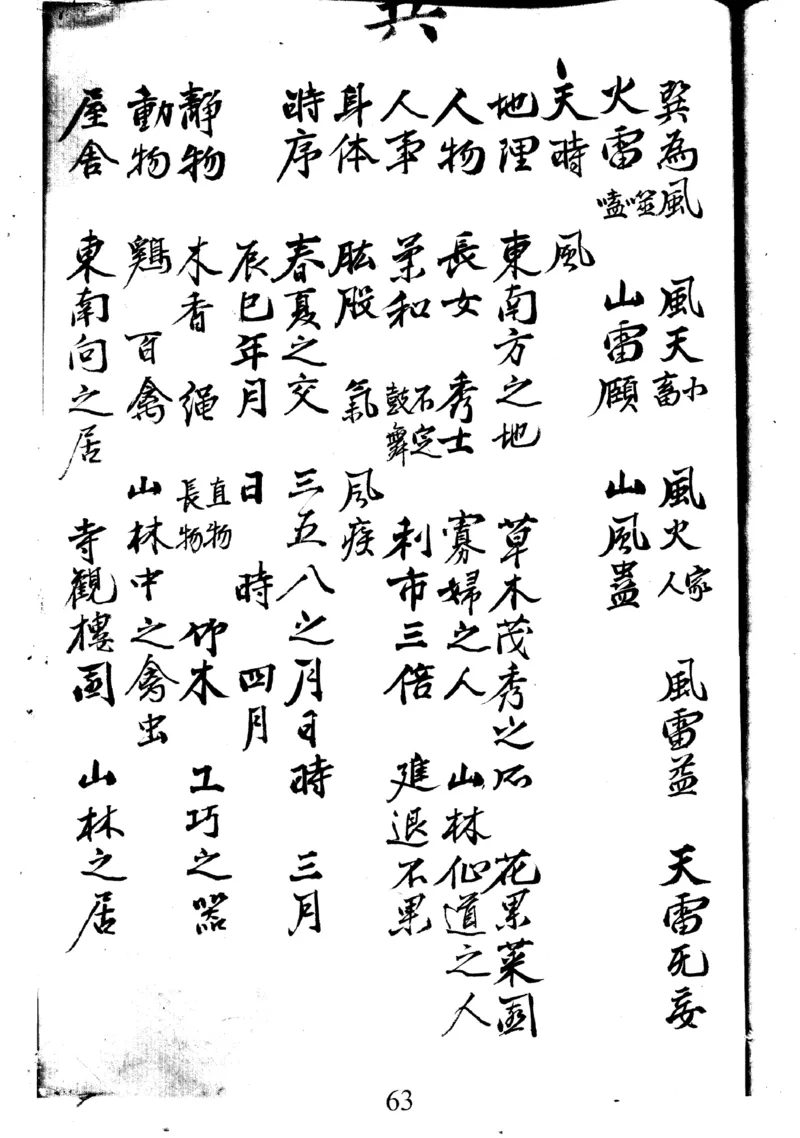 巽為風 風天小畜 風火家人 風雷益 天雷无妄
火雷噬嗑 山雷頤 山風蠱
天時 風
地理 東南方之地 草木茂秀之所 花果菜園
人物 長女 秀士 寡婦之人 山林仙道之人
人事 柔和 不定 鼓舞 利市三倍 進退不果
身体 肱股 氣 风疾
時序 春夏之交 三五八之月日時 三月
辰巳年月日時 四月
靜物 木香 绳 直物 長物 竹木 工巧之器
動物 鷄 百禽 山林中之禽虫
屋舍 東南向之居 寺觀樓園 山林之居
63